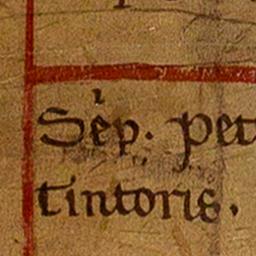 Sep. pet
tintoris.